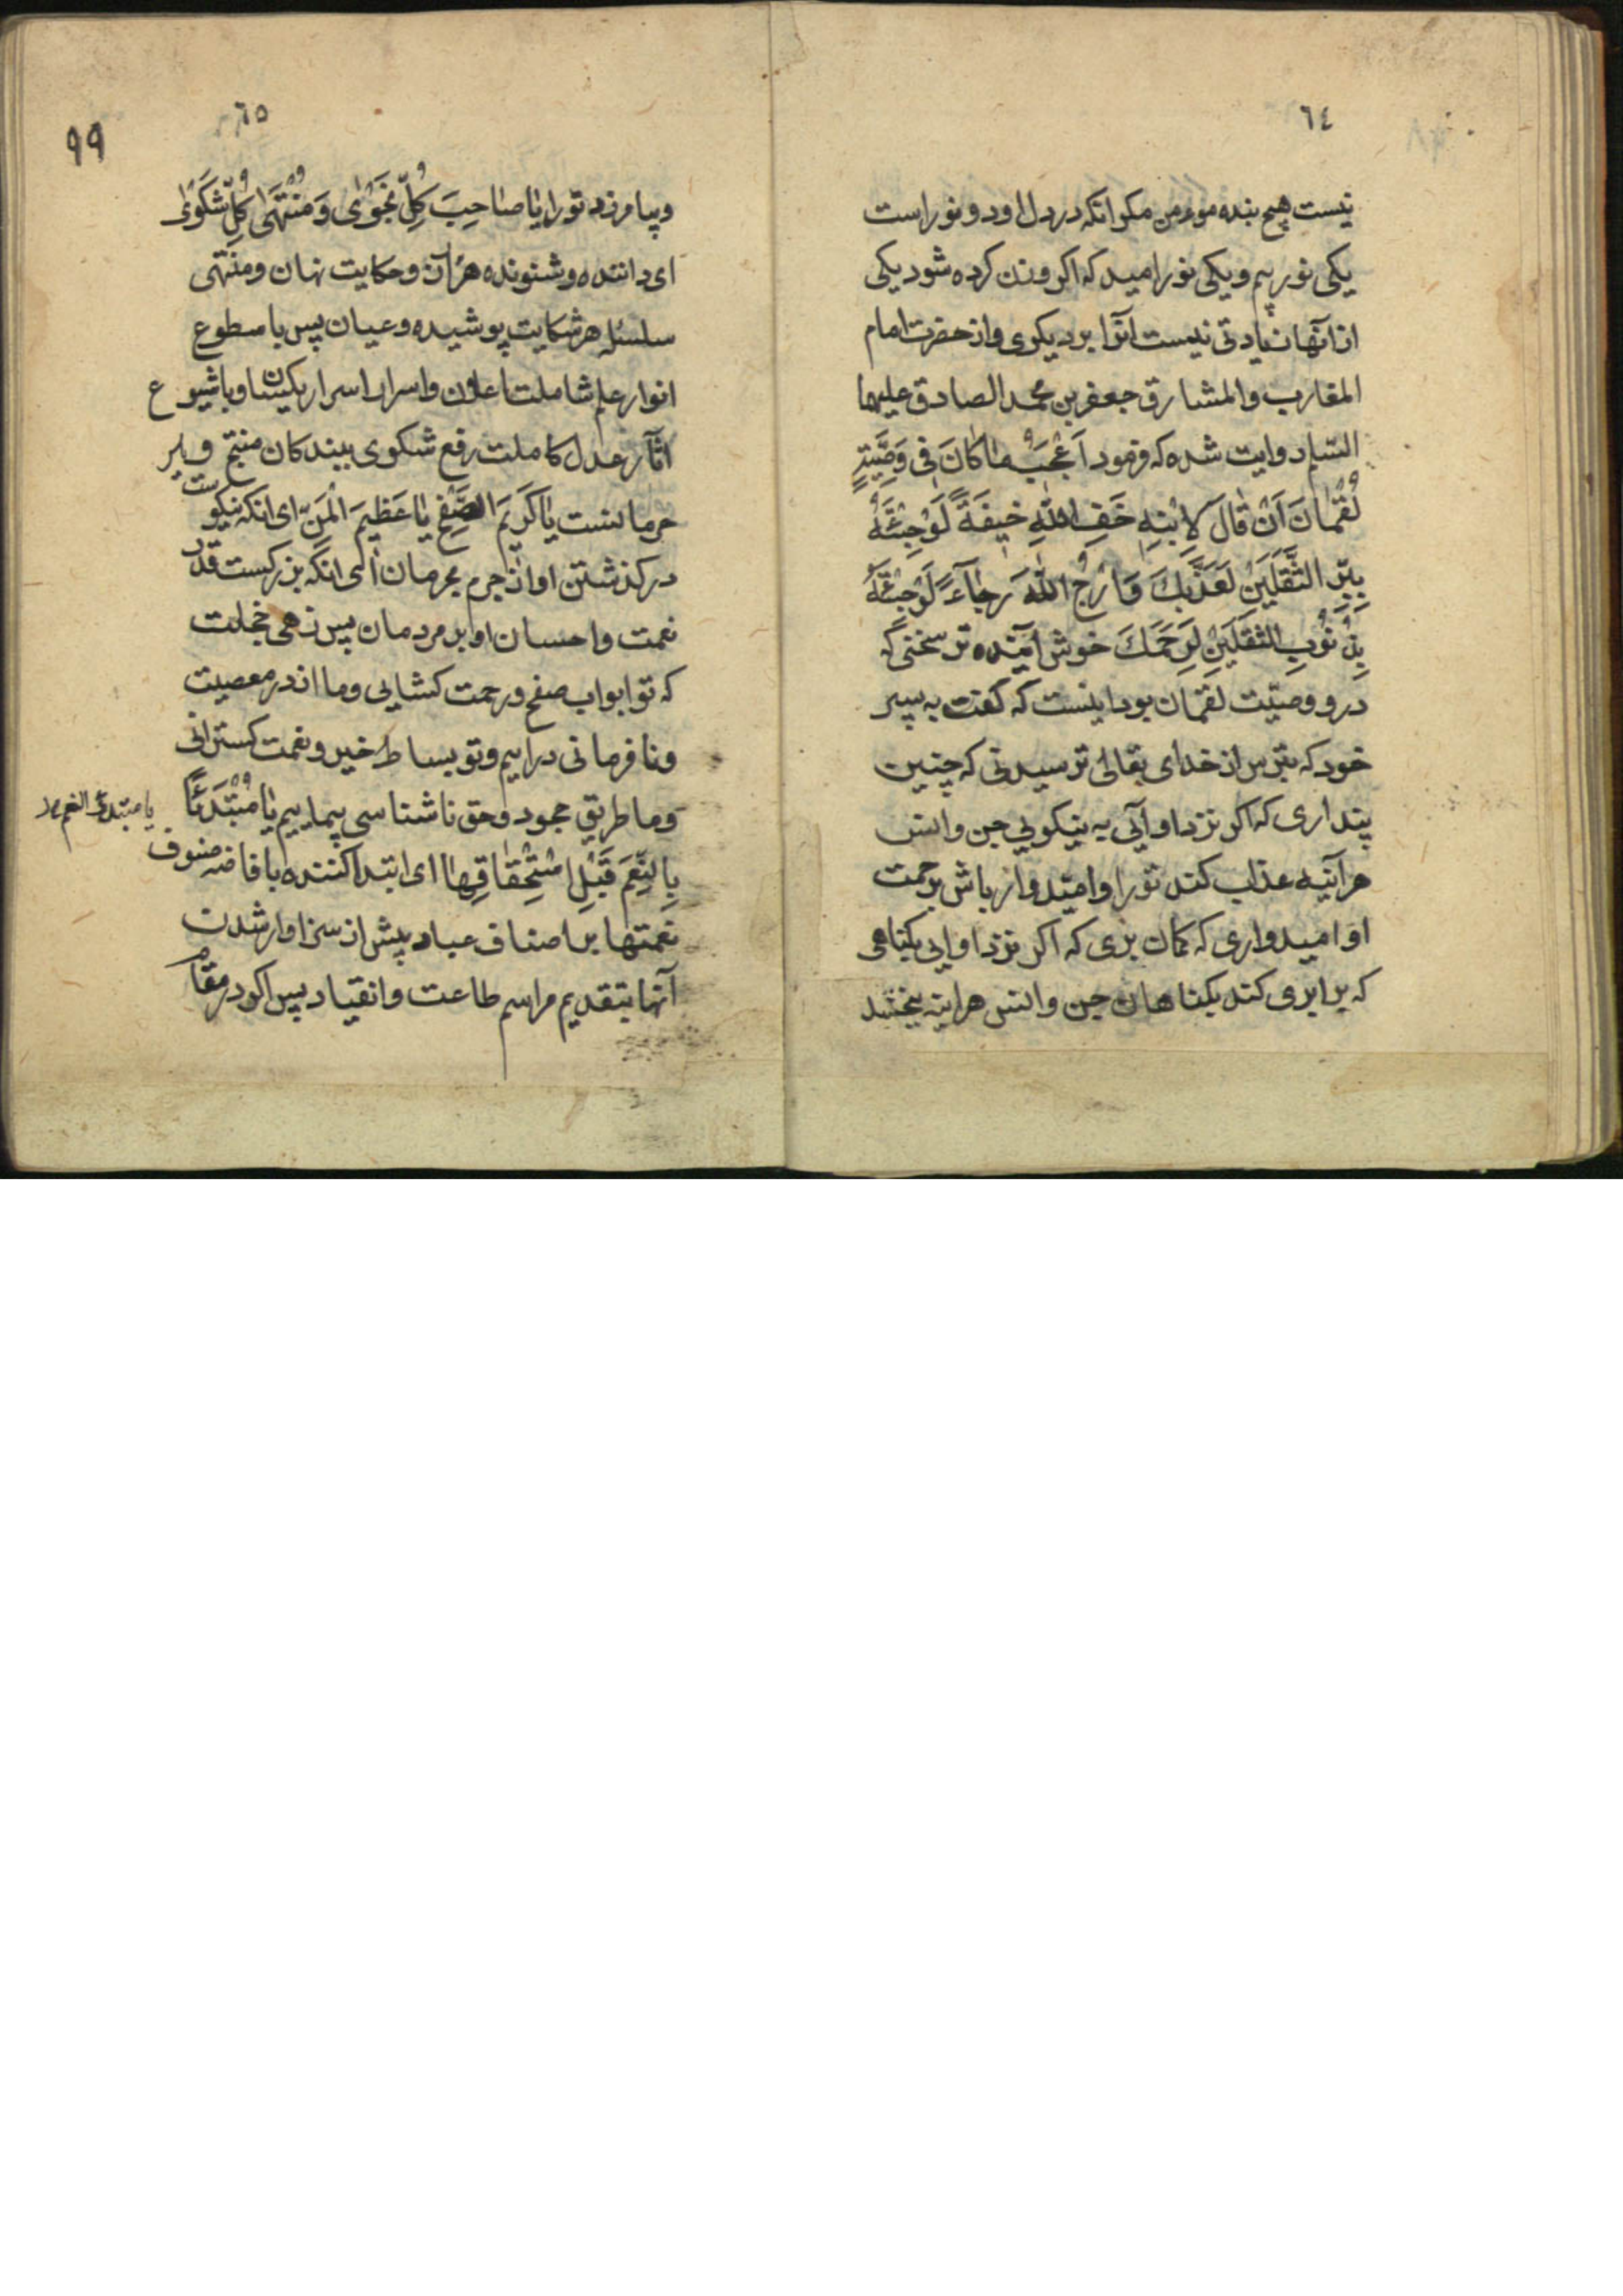 ٦٤
نیست هیچ بنده مومن مکر انکه در دل او دو نور است
یکی نور بیم و یکی نور امید که اکر وزن کرده شود یکی
از انها زیادتی نیست انرا بر دیکری و از حضرت امام
المغارب والمشارق جعفر بن محمد الصادق علیهما
السلم روایت شده که فرمود اَعْجَبُ مٰا کٰانَ فی وَصِیَّتِهِ
لُقْمٰانَ اَنْ قٰالَ لِابْنِهِ خَفِ اللّٰهِ خیفَةً لَوْ جِئْتَهُ
بِبِرِّ الثَّقَلَیْنِ لَعَذَّبَكَ وَ ارْجُ اللّٰهَ رَجٰآءً لَوْ جِئْتَهُ
بِذُنُوبِ الثَّقَلَیْنِ لَرَحَمَكَ خوش آینده تر سخنی که
در و وصیّت لقمان بود اینست که کفت به پسر
خود که بترس از خدای تعالی ترسیدنی که چنین
پنداری که اکر نزد او آئی به نیکویی جن و انس
هر آینه عذاب کند تو را و امیدوار باش برحمت
او امیدواری که کمان بری که اکر نزد او ایی بکناهی
که برابری کند بکناهان جن و انس هراینه ببخشد
٦٥
٩٩
و بیامرزد تو را یٰا صٰاحِبَ کُلِّ نَجْوٰی وَ مُنْتَهٰی کُلِّ شَکْوٰی
ای داننده و شنونده هر راز و حکایت نهان و منتهی
سلسله هر شکایت پوشیده و عیان پس با سطوع
انوار علم شاملت اعلان و اسرار اسرار یکسان و با شیوع
اثآر عدل کاملت رفع شکوی بیندکان منتج
حرمانست یٰا کَریمَ الصَّفْحِ یٰا عَظیمَ الْمَنِّ ای انکه نیکوست
درکذشتن او از جرم مجرمان ای انکه بزرکست قدر
نعمت و احسان او بر مردمان پس زهی خجلت
که تو ابواب صفح و رحمت کشایی و ما از در معصیت
و نافرمانی دراییم و تو بساط خیر و نعمت کسترانی
و ما طریق جحود و حق ناشناسی پیماییم یٰا مُبْتَدِئًا
یا مبتدئ النعم
بِالنِّعَمِ قَبْلَ اسْتِحْقٰاقِهٰا ای ابتدا کننده بافاضه صنوف
نعمتها بر اصناف عباد پیش از سزاوار شدن
آنها بتقدیم مراسم طاعت و انقیاد پس اکر در مقام